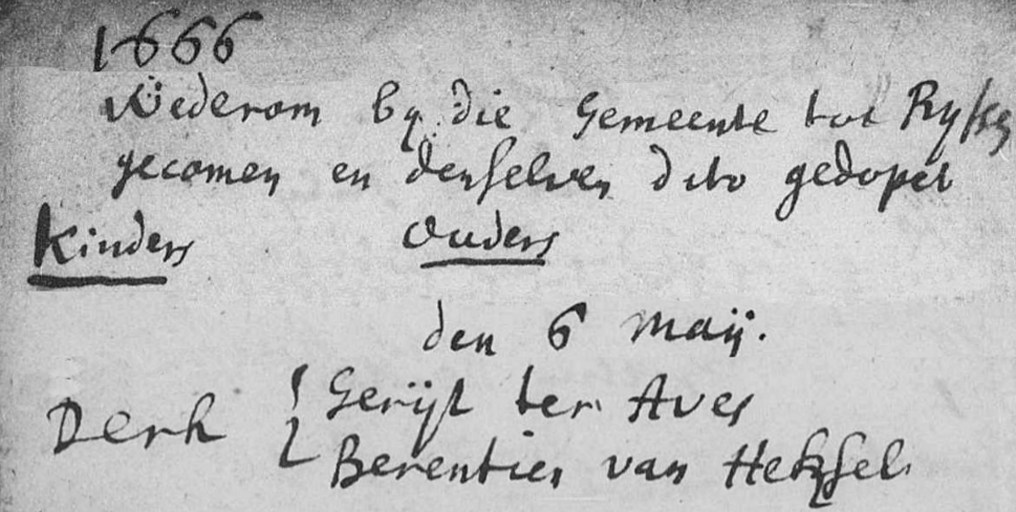 1666
Wederom by die Gemeente tot
gecomen en denselven dito gedopet
Kinders Ouders
den 6 Maij.
Derk Gerijt ter Aves
Berentien van Hekssel